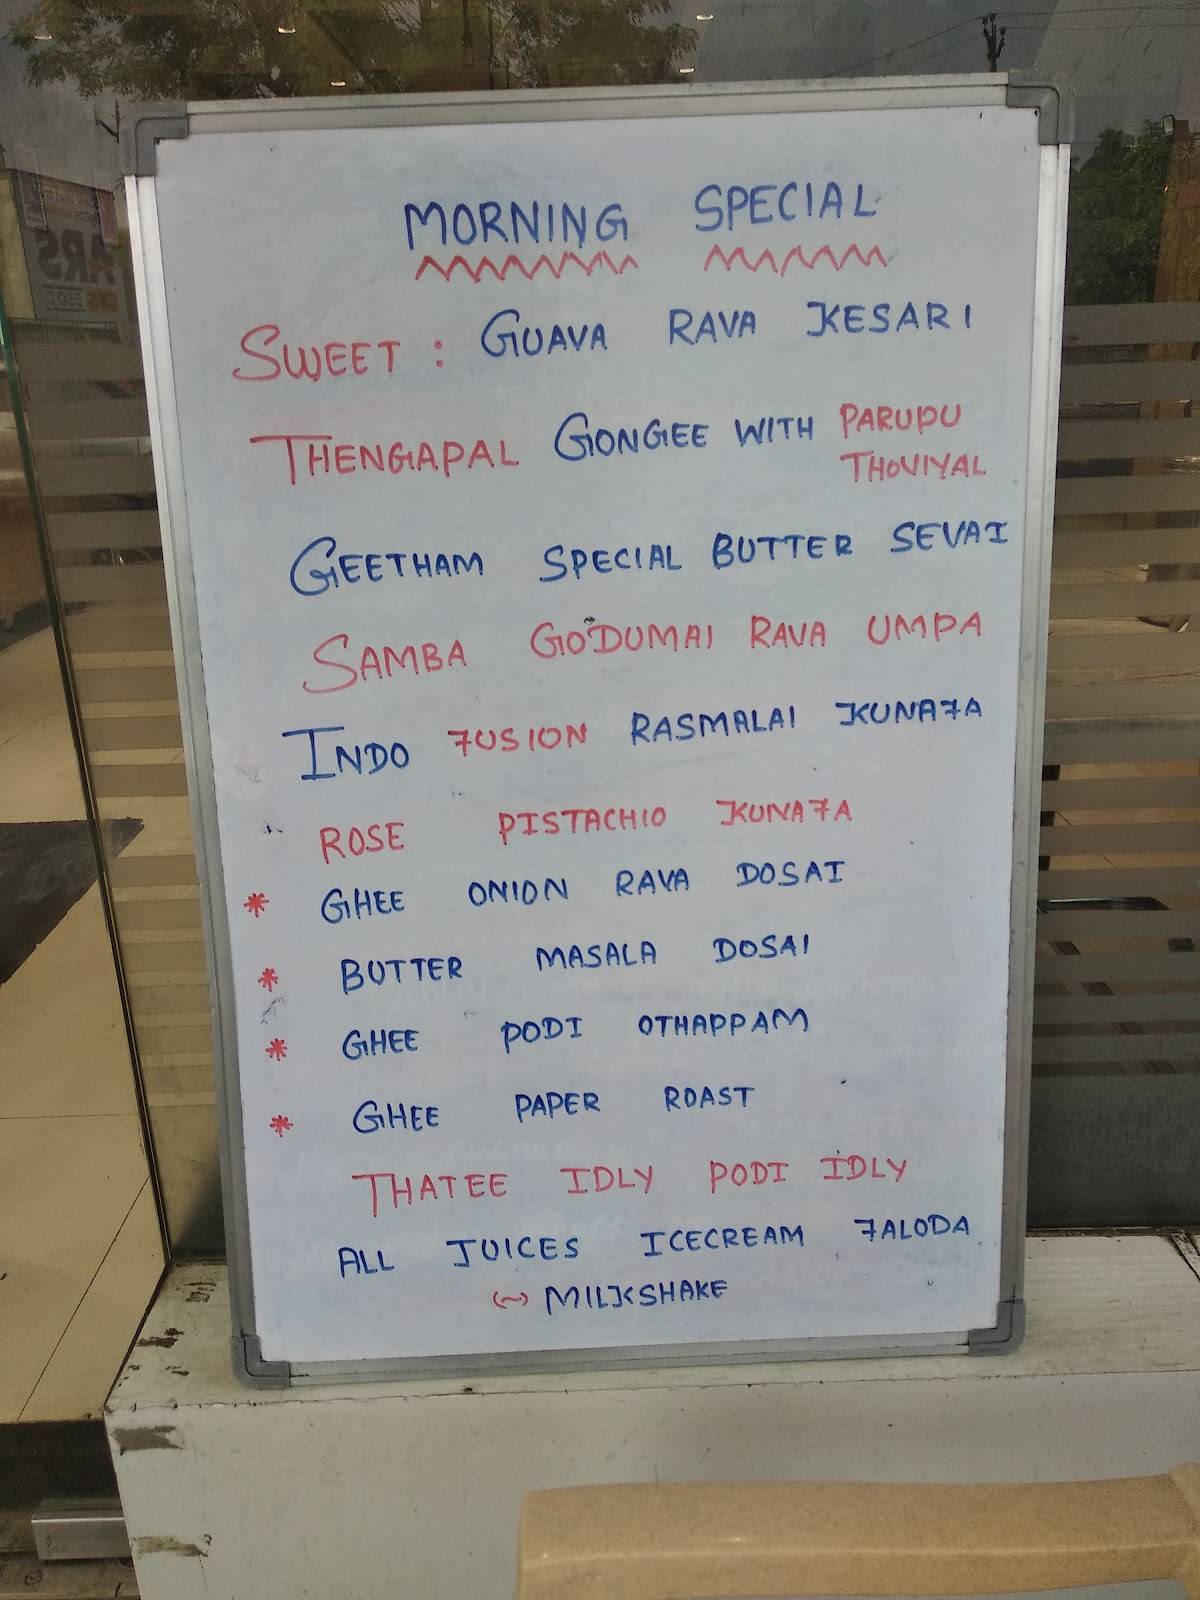 MORNING SPECIAL
SWEET : GUAVA RAVA KESARI
THENGAPAL GONGEE WITH PARUPU
THOVIYAL
GEETHAM SPECIAL BUTTER SEVAI
SAMBA GODUMAI RAVA UMPA
INDO FUSION RASMALAI KUNAFA
ROSE PISTACHIO KUNAFA
* GHEE ONION RAVA DOSAI
* BUTTER MASALA DOSAI
* GHEE PODI OTHAPPAM
* GHEE PAPER ROAST
THATEE IDLY PODI IDLY
ALL JUICES ICECREAM FALODA
MILKSHAKE
ARS